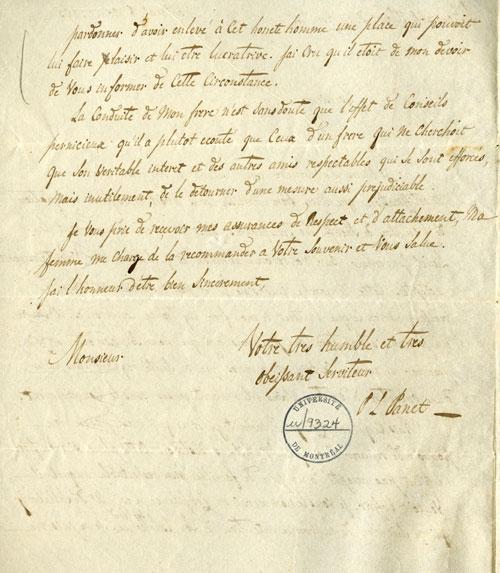 pardonner d'avoir enlevé à Cet honete homme une place qui pouvoit
lui faire plaisir et lui etre lucrative. jai Cru qu'il étoit de mon devoir
de Vous informer de Cette Circonstance.
La Conduite de Mon frere n'est sans doute que l'effet de Conseils
pernicieux qu'il a plutot ecouté que Ceux d'un frere qui ne Cherchoit
que son veritable interet et des autres amis respectables qui se sont efforcés,
Mais inutilement, de le detourner d'une mesure aussi prejudiciable
Je Vous prie de recevoir mes assurances de Respect et d'attachement, Ma
femme me charge de la recommander a Votre Souvenir et Vous Salue.
jai l'honneur d'être bien Sincerement,
Monsieur
Votre tres humble et tres
obeissant Serviteur
P L Panet
UNIVERSITÉ
u/9324
DE MONTRÉAL